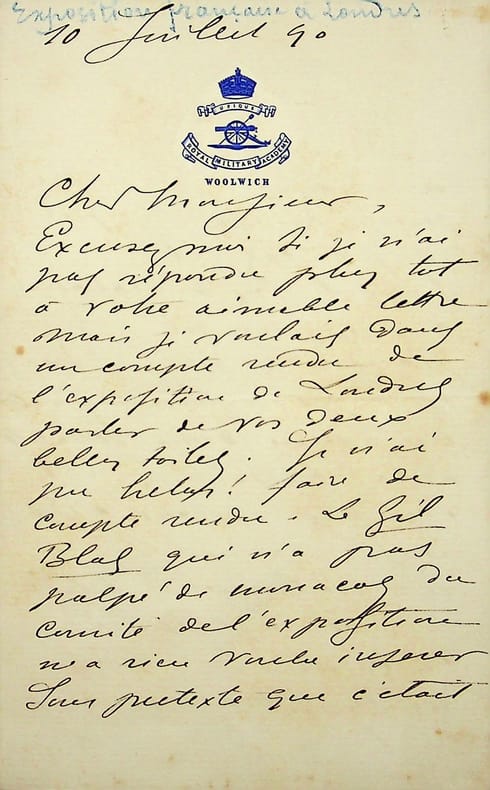 Exposition française à Londres
10 Juillet 90
UBIQUE
ROYAL MILITARY ACADEMY
WOOLWICH
Cher Monsieur,
Excusez moi si je n'ai
pas répondu plus tot
à votre aimable lettre
mais je voulais dans
un compte rendu de
l'exposition de Londres
parler de vos deux
belles toiles. Je n'ai
pu helas! faire de
compte rendu. Le Gil
Blas qui n'a pas
palpé de monacos du
comité de l'exposition
n'a rien voulu inserer
sous pretexte que c'était